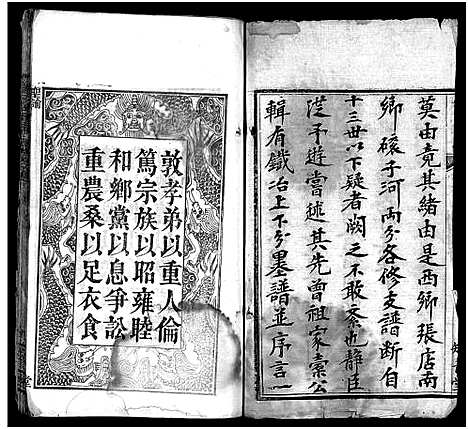 莫由竟其緒由是西鄉張店南
鄉磙子河兩分各修支譜斷自
十三世以下疑者闕之不敢紊也靜臣
從予游嘗述其先曾祖家嚢公
輯有鐵冶上下分墨譜並序言一
聖諭
敦孝弟以重人倫
篤宗族以昭雍睦
和鄉黨以息爭訟
重農桑以足衣食
堂